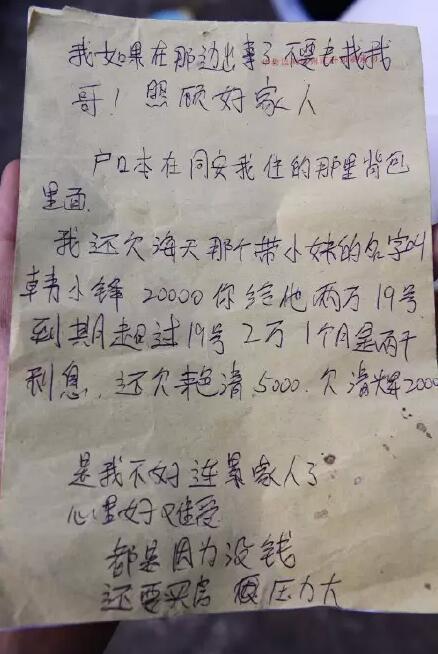 我如果在那边出事了不要去找我
哥！照顾好家人
户口本在同安我住的那里背包
里面.
我还欠海天那个带小妹的名字叫
韩小锋 20000你给他两万 19号
到期超过19号2万1个月是两千
利息，还欠艳清5000.欠清辉2000
是我不好连累家人了
心里好难受
都是因为没钱
还要买房 压力大